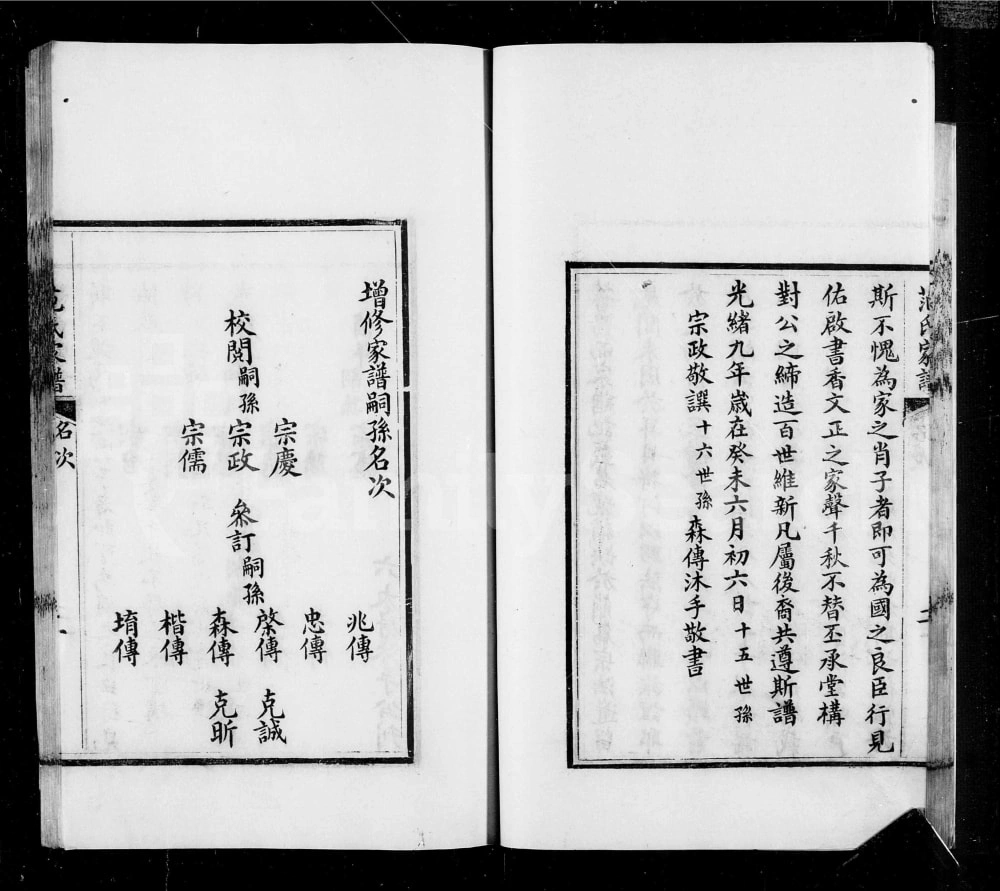 斯不愧為家之肖子者即可為國之良臣行見
佑啟書香文正之家聲千秋不替丕承堂構
對公之締造百世維新凡屬後裔共遵斯譜
光緒九年歲在癸未六月初六日十五世孫
宗政敬譔十六世孫森傳沐手敬書
增修家譜嗣孫名次
校閱嗣孫
宗慶
宗政
宗儒
叅訂嗣孫
兆傳
忠傳
棨傳
森傳
楷傳
堉傳
克誠
克昕
名次